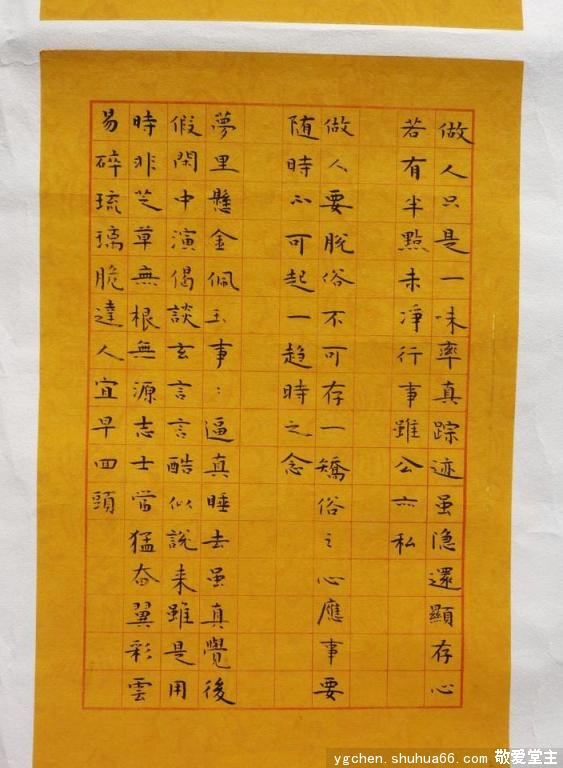 做人只是一味率真踪迹虽隐還顯存心
若有半點未淨行事雖公亦私
做人要脫俗不可存一矯俗之心應事要
随時不可起一趋時之念
夢里懸金佩玉事〻逼真睡去虽真覺後
假閑中演偈談玄言言酷似說来雖是用
時非芝草無根無源志士當猛奋翼彩雲
易碎琉璃脆達人宜早回頭
ygchen.shuhua66.com 敬爱堂主